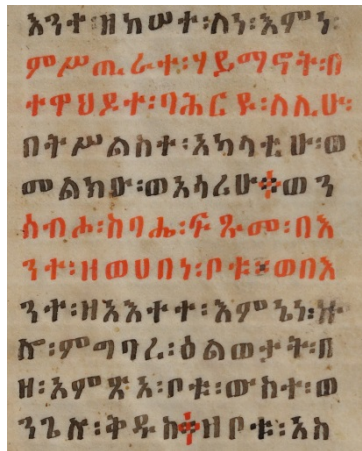 እንተ፡ዘከሠተ፡ለነ፡እምነ፡
ምሥጢራተ፡ሃይማኖት፡በ
ተዋህዶተ፡ባሕርዩ፡ስሊሁ፡
በትሥልስተ፡አካላቲሁ፡ወ
መልክዑ፡ወአሳሪሁ፨ወን
ሰብሖ፡ከባሔ፡ፍጹመ፡በእ
ንተ፡ዘወሀበነ፡ቦቱ፡ወበእ
ንተ፡ዘአእተተ፡እምኔነ፡ኵ
ሎ፡ምግባረ፡ዕልወታት፡በ
ዘ፡አምጽአ፡ቦቱ፡ውስተ፡ወ
ንጌሉ፡ቅዱስ፨ዘቦቱ፡አስ